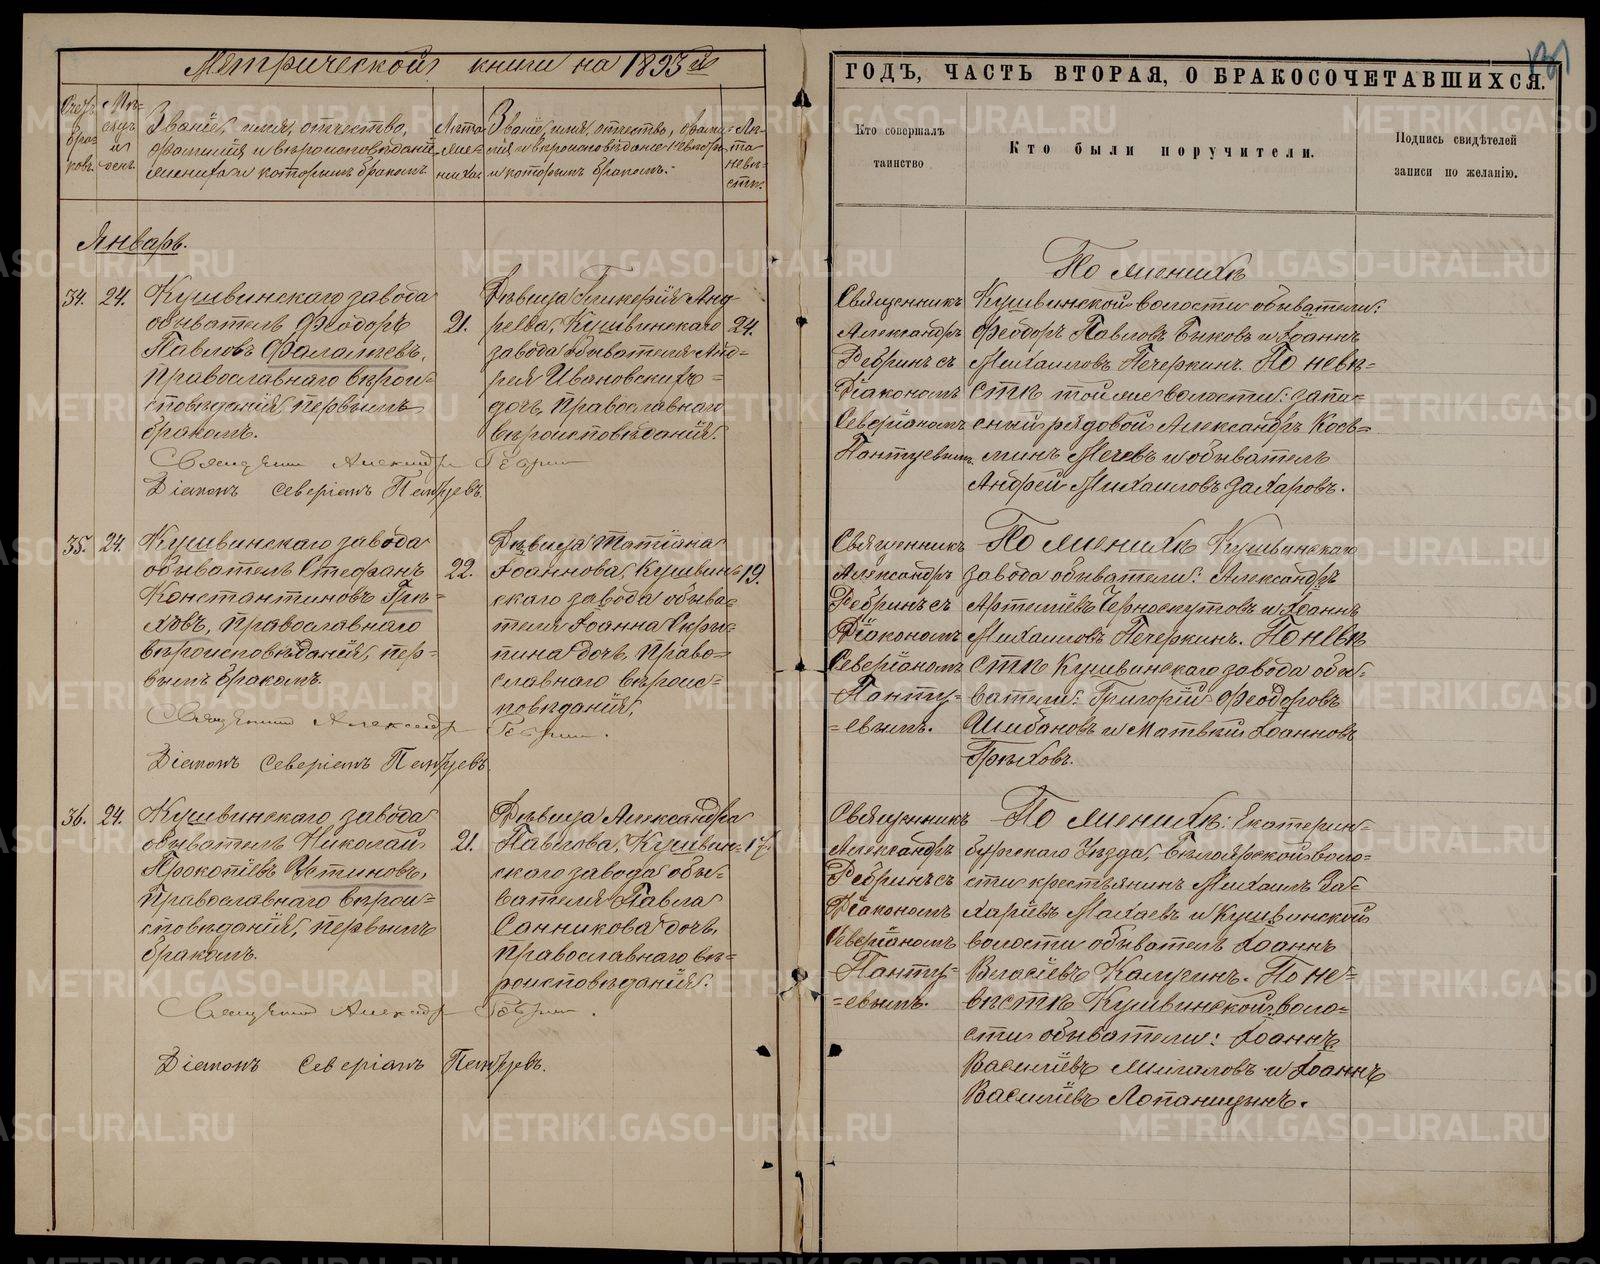 Метрической книги на 1893 й
ГОДЪ, ЧАСТЬ ВТОРАЯ, О БРАКОСОЧЕТАВШИХСЯ.
Счетъ браковъ.
Мѣсяцъ и день.
Званіе, имя, отчество,
фамилія и вѣроисповѣданіе
жениха и которымъ бракомъ
Лѣта
жениха
Званіе, имя, отчество, фами-
лія и вѣроисповѣданіе невѣсты
и которымъ бракомъ.
Лѣ-
та
невѣ-
сты.
Кто совершалъ
таинство
Кто были поручители.
Подпись свидѣтелей
записи по желанію.
Январь.
34.
24.
Кушвинскаго завода
обыватель Ѳеодоръ
Павловъ Фалалѣевъ,
православнаго вѣрои-
сповѣданія, первымъ
бракомъ.
21.
Дѣвица Гликерія Анд-
реева, Кушвинскаго
завода обывателя Анд-
рея Ивановскихъ
дочь, православнаго
вѣроисповѣданія.
24.
Священникъ
Александръ
Ребринъ съ
Діакономъ
Северіаномъ
Пантуевымъ.
По женихѣ
Кушвинской волости обыватели:
Ѳеодоръ Павловъ Быковъ и Іоаннъ
Михаиловъ Печеркинъ. По невѣ-
стѣ той же волости: запа-
сный рядовой Александръ Косъ-
минъ Мечевъ и обыватель
Андрей Михаиловъ Захаровъ.
Священникъ Александръ Ребринъ
Діаконъ Северіанъ Пантуевъ.
35.
24.
Кушвинскаго завода
обыватель Стефанъ
Константиновъ Грѣ-
ховъ, православнаго
вѣроисповѣданія, пер-
вымъ бракомъ.
22.
Дѣвица Татіана
Іоаннова, Кушвин-
скаго завода обыва-
теля Іоанна Скри-
пина дочь, право-
славнаго вѣроис-
повѣданія.
19.
Священникъ
Александръ
Ребринъ съ
Діакономъ
Северіаномъ
Панту-
-евымъ.
По женихѣ Кушвинскаго
завода обыватели: Александръ
Артеміевъ Черноскутовъ и Іоаннъ
Михаиловъ Печеркинъ. По невѣ-
стѣ Кушвинскаго завода обы-
ватели: Григорій Ѳеодоровъ
Шибановъ и Матвѣй Іоанновъ
Грѣховъ.
Священникъ Александръ Ребринъ.
Діаконъ Северіанъ Пантуевъ.
36.
24.
Кушвинскаго завода
обыватель Николай
Прокопіевъ Устиновъ,
православнаго вѣрои-
сповѣданія, первымъ
бракомъ.
21.
Дѣвица Александра
Павлова, Кушвин-
скаго завода обы-
вателя Павла
Санникова дочь,
православнаго вѣ-
роисповѣданія.
Священникъ
Александръ
Ребринъ съ
Діакономъ
Северіаномъ
Панту-
-евымъ.
По женихѣ: Екатерин-
бургскаго Уѣзда, Бѣлоярской воло-
сти крестьянинъ Михаилъ За-
харіевъ Махаевъ и Кушвинской
волости обыватель Іоаннъ
Власіевъ Калугинъ. По не-
вѣстѣ Кушвинской воло-
сти обыватели: Іоаннъ
Василіевъ Мигаловъ и Іоаннъ
Василіевъ Лопаницынъ.
Священникъ Александръ Ребринъ.
Діаконъ Северіанъ Пантуевъ.
METRIKI.GASO-URAL.RU